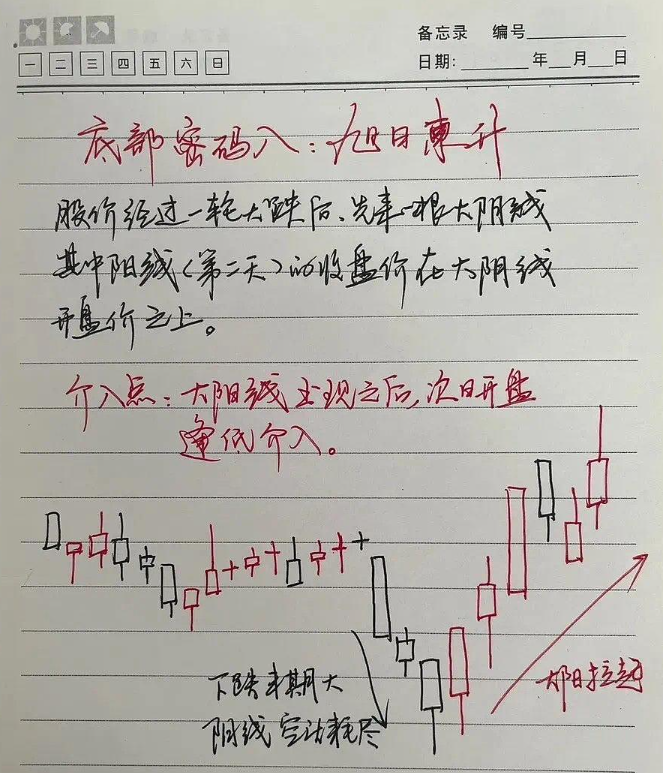 备忘录 编号
一 二 三 四 五 六 日
日期: 年 月 日
底部密码八:旭日東升
股价经过一轮大跌后、先来一根大阴线
其中阳线(第二天)的收盘价在大阴线
开盘价之上。
介入点:大阳线出现之后,次日开盘
逢低介入。
下跌末期大
阴线空动耗尽
大阳拉起